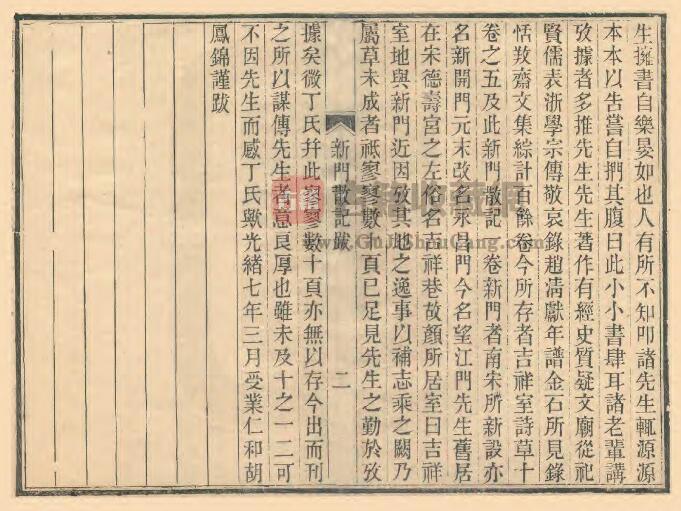 生擁書自樂晏如也人有所不知叩諸先生輒源源
本本以告嘗自捫其腹曰此小小書肆耳諸老輩講
攷據者多推先生先生著作有經史質疑文廟從祀
賢儒表浙學宗傳敬哀錄趙淸獻年譜金石所見錄
恬敩齋文集綜計百餘卷今所存者吉祥室詩草十
卷之五及此新門散記一卷新門者南宋所新設亦
名新開門元末改名永昌門今名望江門先生舊居
在宋德壽宮之左俗名吉祥巷故顏所居室曰吉祥
室地與新門近因攷其地之逸事以補志乘之闕乃
屬草未成者祗寥寥數十頁已足見先生之勤於攷
新門散記跋
二
據矣微丁氏幷此寥寥數十頁亦無以存今出而刊
之所以謀傳先生者意良厚也雖未及十之一二可
不因先生而感丁氏歟光緒七年三月受業仁和胡
鳳錦謹跋
www.GuJiShouCang.com